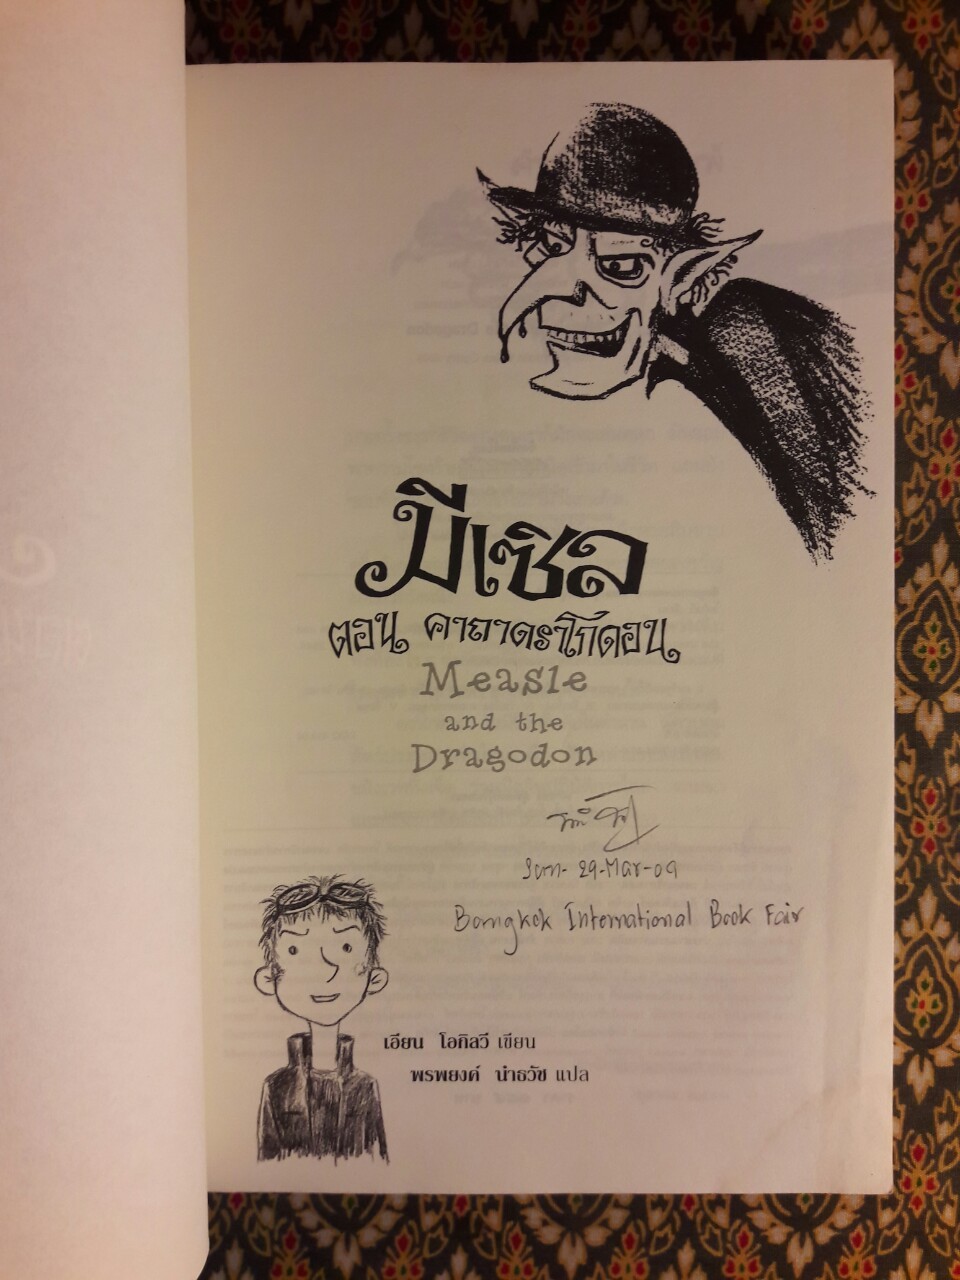 มีเซิล
ตอน คาถาดราโก้ดอน
Measle
and the
Dragodon
Sun- 29-Mar-09
Bangkok International Book Fair
เอียน โอกิลวี เขียน
พรพยงค์ นำธวัช แปล